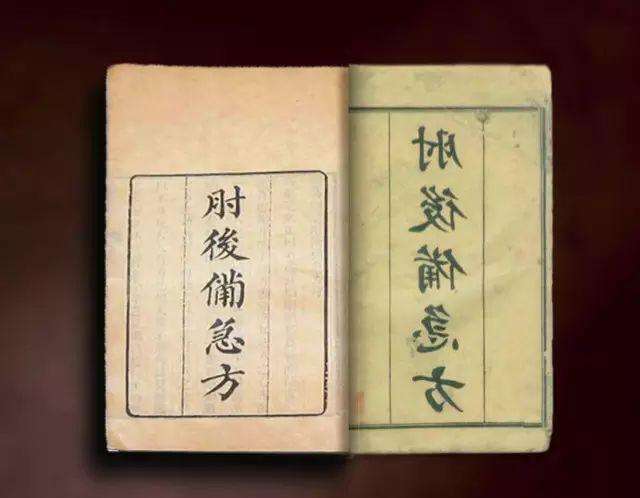 肘後備急方
肘後備急方